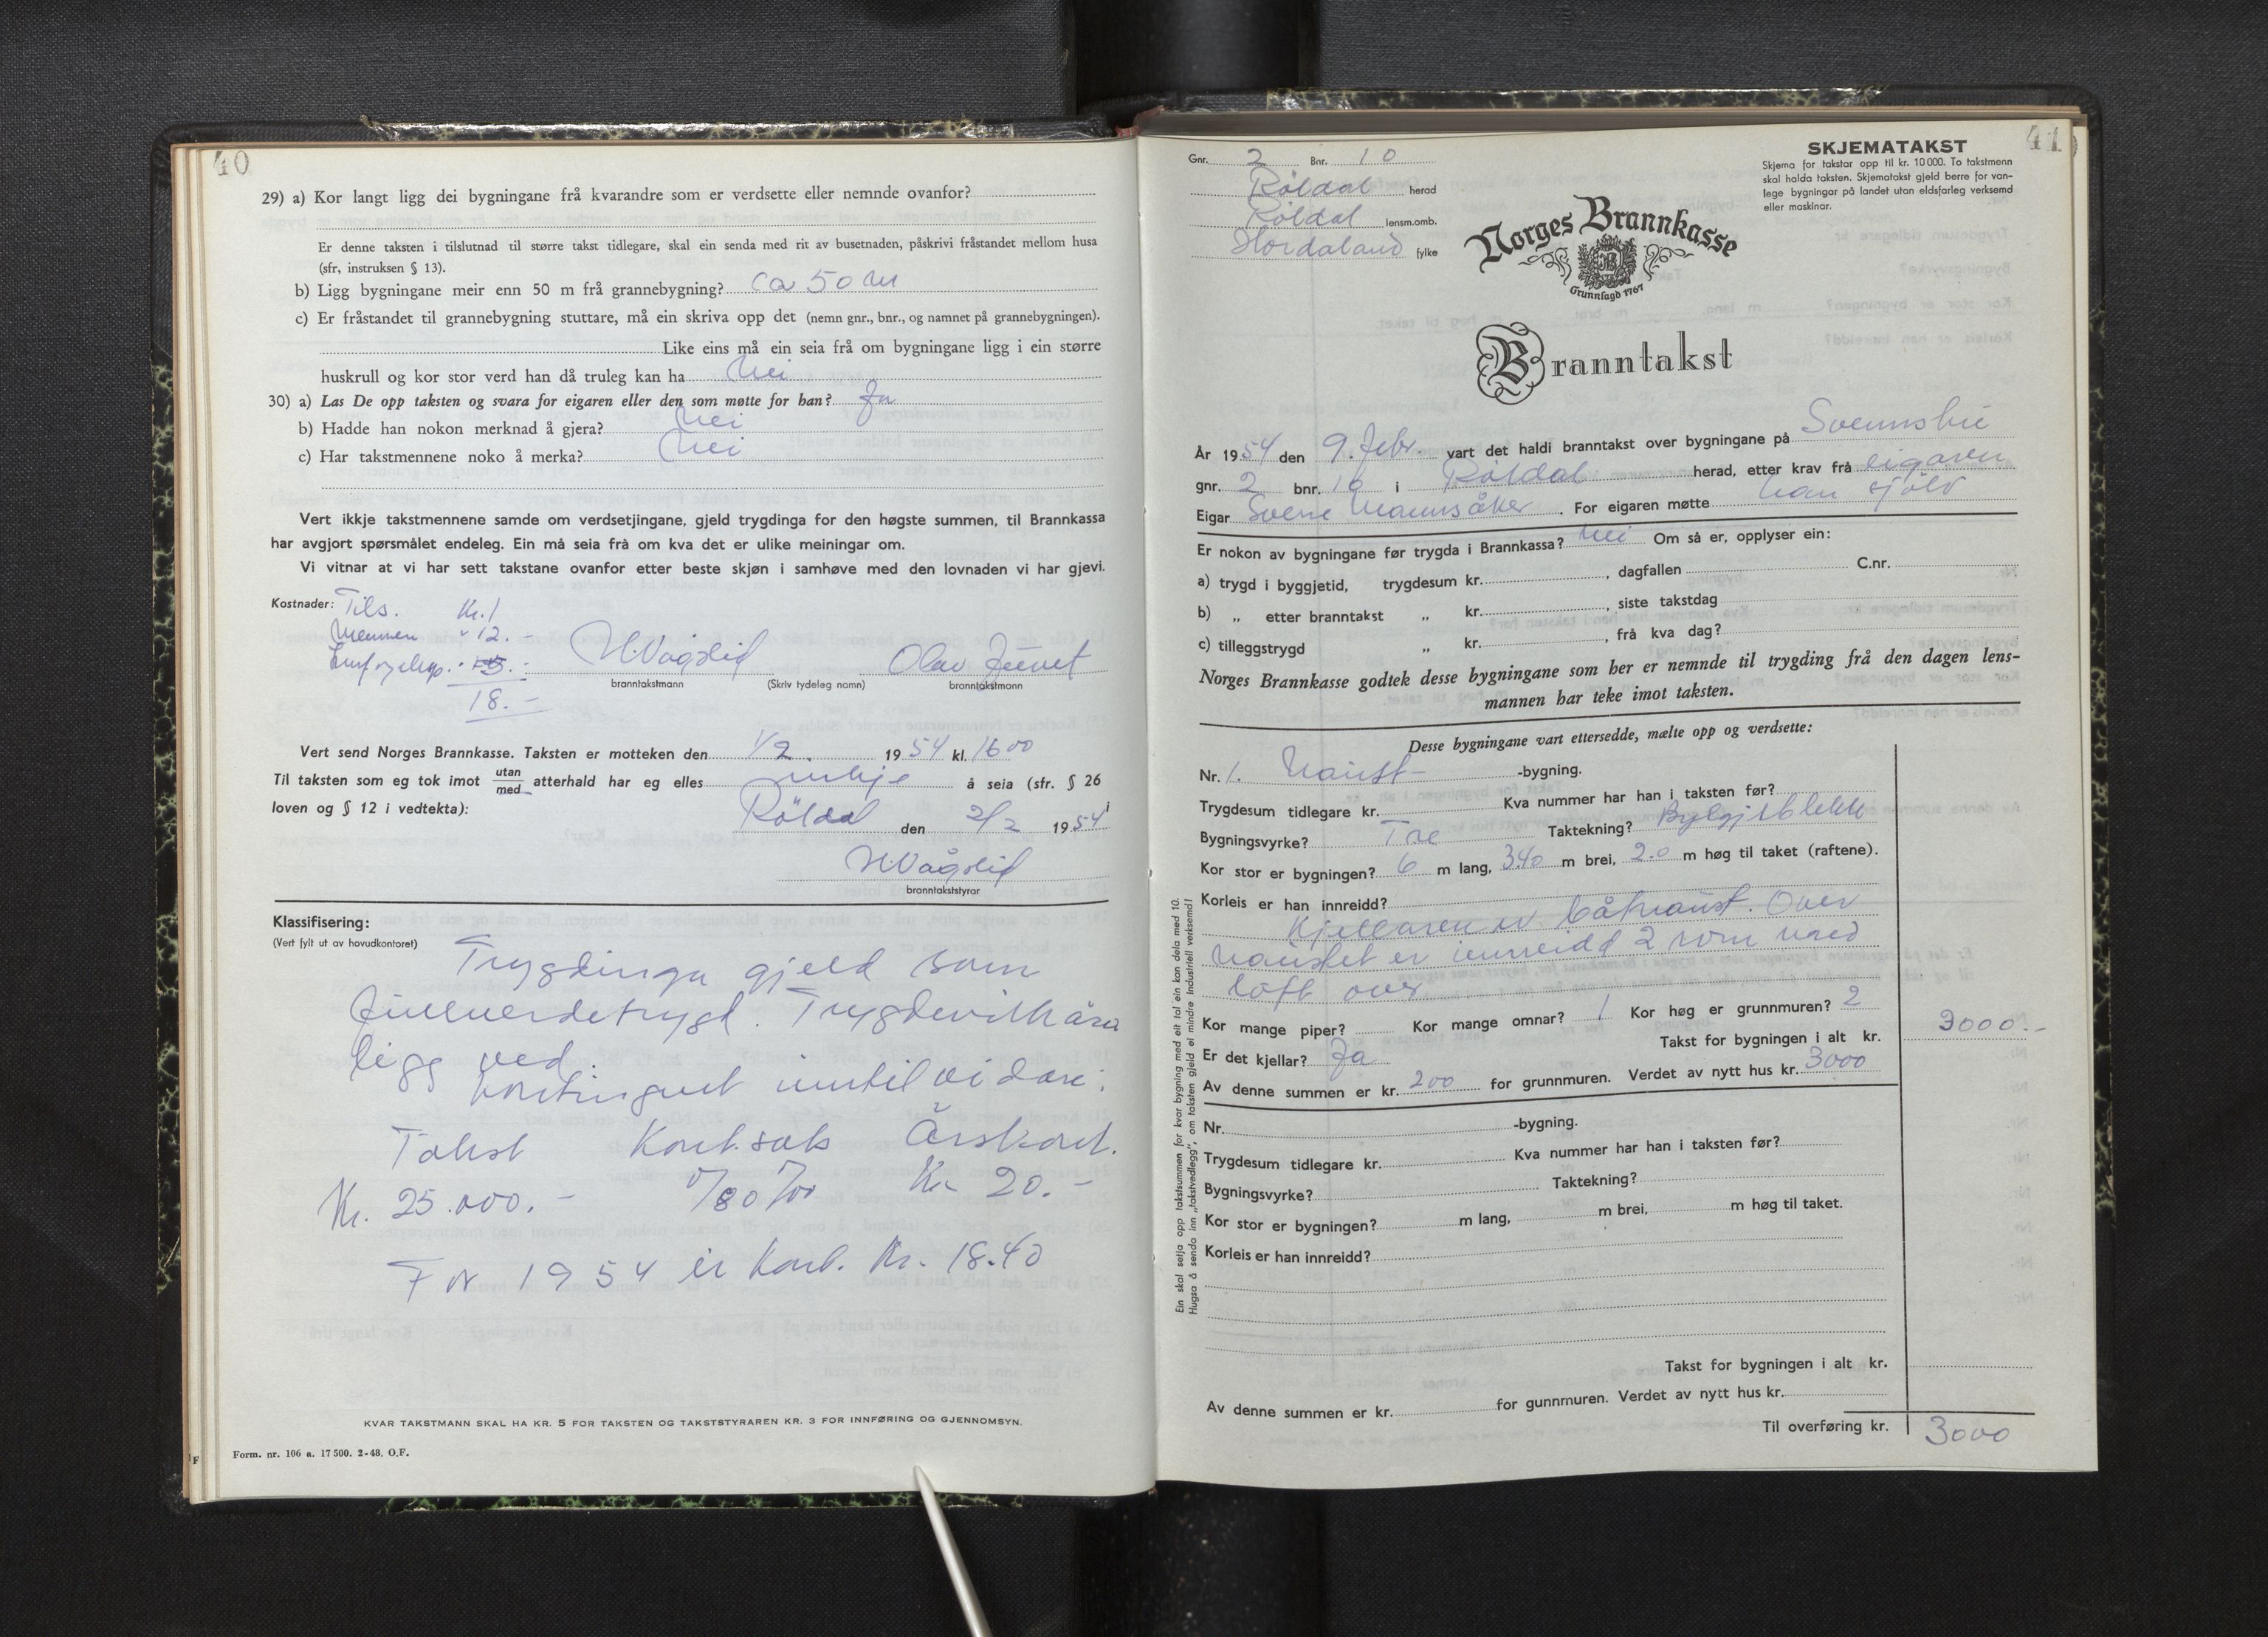 40
29) a) Kor langt ligg dei bygningane frå kvarandre som er verdsette eller nemnde ovanfor?
Er denne taksten i tilslutnad til større takst tidlegare, skal ein senda med rit av busetnaden, påskrivi fråstandet mellom husa
(sfr, instruksen § 13).
b) Ligg bygningane meir enn 50 m frå grannebygning? ca 50 m
c) Er fråstandet til grannebygning stuttare, må ein skriva opp det (nemn gnr., bnr., og namnet på grannebygningen).
Like eins må ein seia frå om bygningane ligg i ein større
huskrull og kor stor verd han då truleg kan ha Nei
30) a) Las De opp taksten og svara for eigaren eller den som møtte for han? Ja
b) Hadde han nokon merknad å gjera? Nei
c) Har takstmennene noko å merka? Nei
Vert ikkje takstmennene samde om verdsetjingane, gjeld trygdinga for den høgste summen, til Brannkassa
har avgjort spørsmålet endeleg. Ein må seia frå om kva det er ulike meiningar om.
Vi vitnar at vi har sett takstane ovanfor etter beste skjøn i samhøve med den lovnaden vi har gjevi.
Kostnader: Tils. Kr. 1
Mennen " 12.-
18.-
H Vågslid Olav Juvet
branntakstmann (Skriv tydeleg namn) branntakstmann
Vert send Norges Brannkasse. Taksten er motteken den 1/2 1954 kl. 16 00
Til taksten som eg tok imot utan/med atterhald har eg elles inkje å seia (sfr. § 26
loven og § 12 i vedtekta): i
Röldal den 2/2 1954
H Vågslid
branntakststyrar
Klassifisering:
(Vert fylt ut av hovudkontoret)
Trygdinga gjeld som
fullverdetrygd. Trygdevilkåra
ligg ved.
Kontingent inntil vidare:
Takst Kont.sats Årskont.
Kr. 25.000.- 0/80 0/00 Kr 20.-
For 1954 er Kont. Kr. 18.40
KVAR TAKSTMANN SKAL HA KR. 5 FOR TAKSTEN OG TAKSTSTYRAREN KR. 3 FOR INNFØRING OG GJENNOMSYN.
Form. nr. 106 a. 17 500. 2-48. O.F.
41
Gnr. 2 Bnr. 10
Röldal herad
Röldal lensm.omb.
Hordaland fylke
SKJEMATAKST
Skjema for takstar opp til kr. 10 000. To takstmenn
skal halda taksten. Skjematakst gjeld berre for van-
lege bygningar på landet utan eldsfarleg verksemd
eller maskinar.
Norges Brannkasse
Grunnlagd 1767
Branntakst
År 1954 den 9. febr. vart det haldi branntakst over bygningane på Svennsbu
gnr. 2 bnr. 10 i Röldal herad, etter krav frå eigaren
Eigar Svene Mannsåker . For eigaren møtte han sjölv
Er nokon av bygningane før trygda i Brannkassa? Nei Om så er, opplyser ein:
a) trygd i byggjetid, trygdesum kr. , dagfallen C.nr.
b) „ etter branntakst „ kr. , siste takstdag
c) tilleggstrygd „ kr. , frå kva dag?
Norges Brannkasse godtek desse bygningane som her er nemnde til trygding frå den dagen lens-
mannen har teke imot taksten.
Desse bygningane vart ettersedde, mælte opp og verdsette:
Nr. 1. Naust- -bygning.
Trygdesum tidlegare kr. Kva nummer har han i taksten før?
Bygningsvyrke? Tre Taktekning? Bylgjeblekk
Kor stor er bygningen? 6 m lang, 3.40 m brei, 2.0 m høg til taket (raftene).
Korleis er han innreidd?
Kjellaren er båtnaust. Over
naustet er innreidd 2 rom med
loft over
Kor mange piper? Kor mange omnar? 1 Kor høg er grunnmuren? 2
Er det kjellar? Ja Takst for bygningen i alt kr. 3000.-
Av denne summen er kr. 200 for grunnmuren. Verdet av nytt hus kr. 3000
Nr. -bygning.
Trygdesum tidlegare kr. Kva nummer har han i taksten før?
Bygningsvyrke? Taktekning?
Kor stor er bygningen? m lang, m brei, m høg til taket.
Korleis er han innreidd?
Takst for bygningen i alt kr.
Av denne summen er kr. for gunnmuren. Verdet av nytt hus kr.
Til overføring kr. 3000
Ein skal setja opp takstsummen for kvar bygning med eit tal ein kan dela med 10.
Hugsa å senda inn „takstvedlegg”, om taksten gjeld ei mindre industriell verksemd!